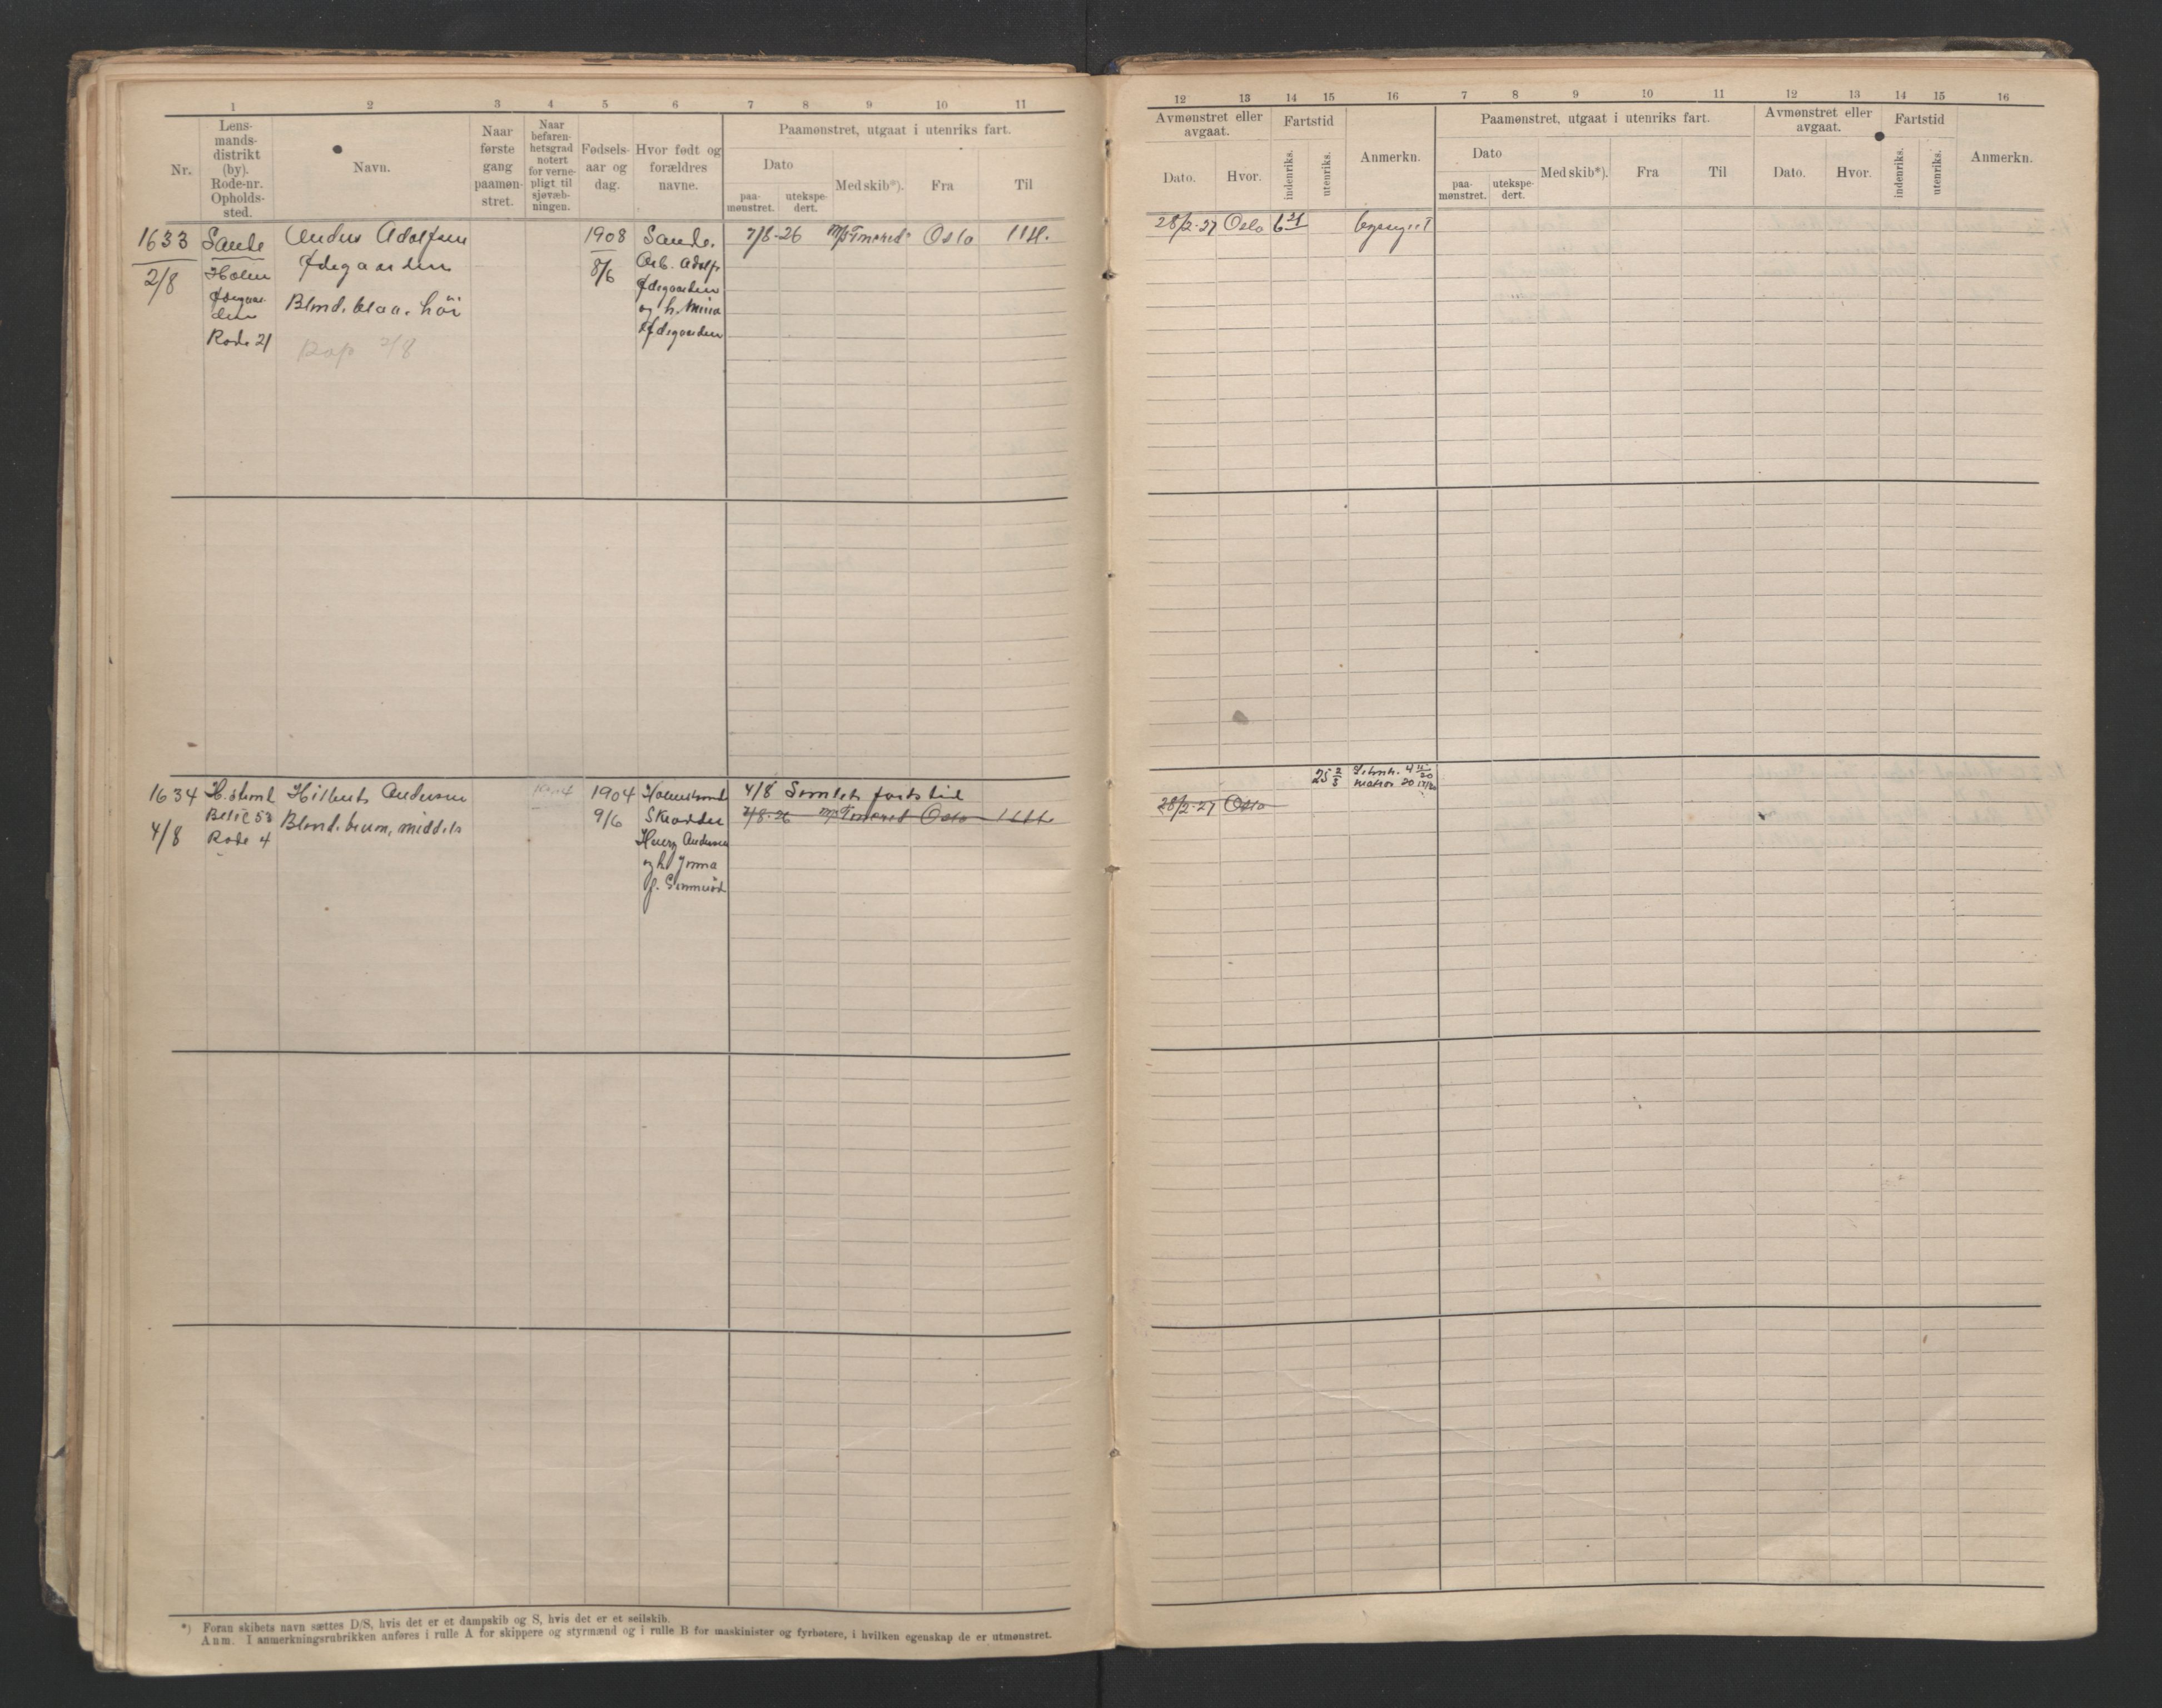 1 2 3 4 5 6 7 8 9 10 11
Nr.
Lens-
mands-
distrikt
(by).
Rode-nr.
Opholds-
sted.
Navn.
Naar
første
gang
paamøn-
stret.
Naar
befaren-
hetsgrad
notert
for verne-
pligt til
sjøvæb-
ningen.
Fødsels-
aar og
dag.
Hvor født og
forældres
navne.
Paamønstret, utgaat i utenriks fart.
Dato
paa-
mønstret.
utekspe-
dert.
Med skib*).
Fra
Til
1633
2/8
Sande
Holm
Ødegaar-
den
Rode 21
Anders Adolfsen
Ødegaarden
Blond. blaa. høi
Rap 2/8
1908
8/6
Sande.
Arb. Adolf
Ødegaarden
og h. Mina
Ødegaarden
7/8-26 M/S Oslo
1634
4/8
Rode 4
Andersen
Blond. brun, middels
1904
9/6
Holmestrand
Skrædder
Henry Andersen
og h.
f.
4/8 Samlet fartstid
7/8-26 M/S Oslo
*) Foran skibets navn sættes D/S, hvis det er et dampskib og S, hvis det er et seilskib.
Anm. I anmerkningsrubrikken anføres i rulle A for skippere og styrmænd og i rulle B for maskinister og fyrbøtere, i hvilken egenskap de er utmønstret.
12 13 14 15 16 7 8 9 10 11 12 13 14 15 16
Avmønstret eller
avgaat.
Dato.
Hvor.
Fartstid
indenriks.
utenriks.
Anmerkn.
Paamønstret, utgaat i utenriks fart.
Dato
paa-
mønstret.
utekspe-
dert.
Med skib*).
Fra
Til
Avmønstret eller
avgaat.
Dato.
Hvor.
Fartstid
indenriks.
utenriks.
Anmerkn.
28/2-27 Oslo 6 21
25 2/3
matros 20
28/2-27 Oslo